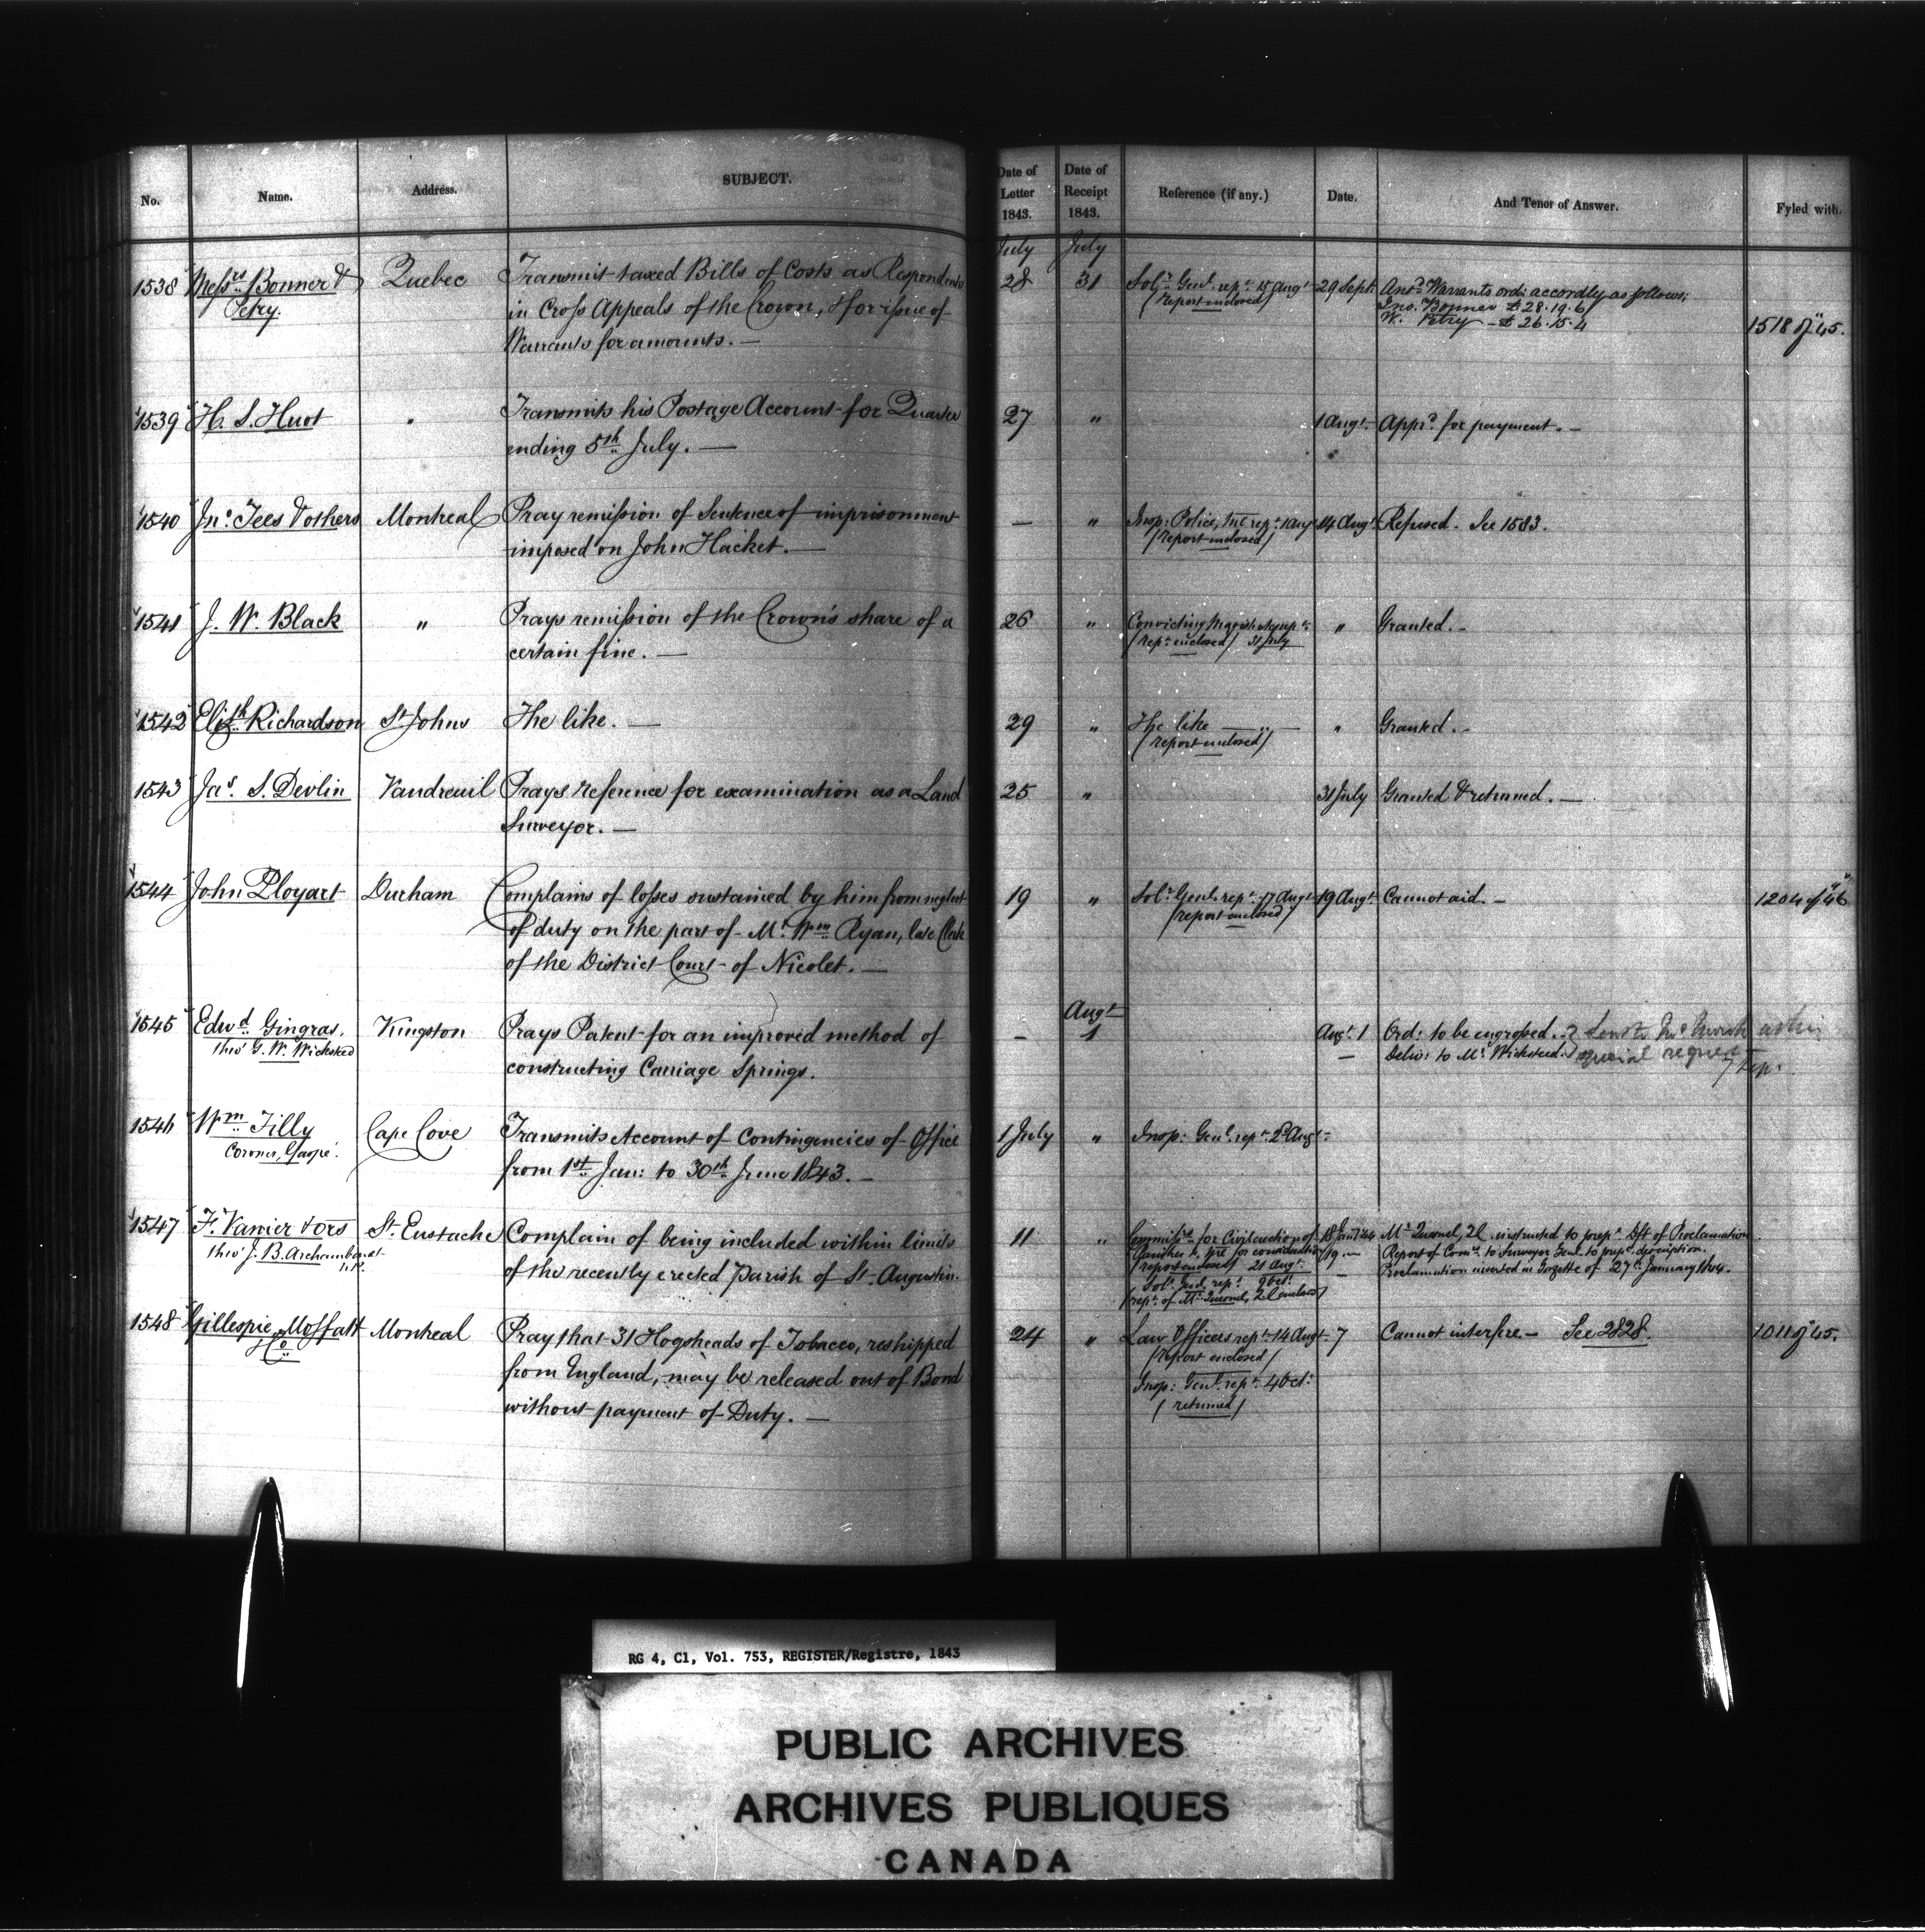 No. Name. Address. SUBJECT. Date of Letter 1843. Date of Receipt 1843. Reference (if any.) Date. And Tenor of Answer. Fyled with.
July July
1538 Messrs Bonner & Quebec Transmit taxed Bills of Costs as Respondents 28 31 Solr Genl. rept. 15 Augt 29 Sept. Ansd. Warrants ord: accordly as follows:
Petry. in Cross Appeals of the Crown, & for issue of (report enclosed) Jno. Bonner £28.19.6
Warrants for amounts. — W. Petry — £26.15.4 1518 of "45.
1539 H. S. Huot " Transmits his Postage Account for Quarter 27 " 1 Augt. Appd. for payment. —
ending 5th July. —
1540 Jno. Tees & others Montreal Pray remission of Sentence of imprisonment — " Insp: Police, Mtl rept. 1 Aug 14 Augt. Refused. See 1583.
imposed on John Hacket. — (report enclosed)
1541 J. W. Black " Prays remission of the Crown's share of a 26 " Convicting Magistrates rept. " Granted. —
certain fine. — (rept. enclosed) 31 July
1542 Elizth Richardson St Johns The like. — 29 " The like — " Granted. —
(report enclosed)
1543 Jas. S. Devlin Vaudreuil Prays reference for examination as a Land 25 " 31 July Granted & returned. —
Surveyor. —
1544 John Ployart Durham Complains of losses sustained by him from neglect 19 " Solr Genl. rept. 17 Augt 19 Augt. Cannot aid. — 1204 of "46
of duty on the part of Mr. Wm Ryan, late Clerk (report enclosed)
of the District Court of Nicolet. —
Augt
1545 Edwd Gingras, Kingston Prays Patent for an improved method of — 1 Augt. 1 Ord: to be engrossed.
thro' G. W. Wicksteed constructing Carriage Springs. — Deliv: to Mr. Wicksteed. special request
1546 Wm Tilly Cape Cove Transmits Account of Contingencies of Office 1 July " Insp: Genl. rept. 2d Augt.
Coroner, Gaspé. from 1st Jan: to 30th June 1843. —
1547 F. Vanier & ors St. Eustache Complain of being included within limits 11 " for Civil erection of 18 Jany 44 Mr. Quesnel, 2C instructed to prepe. Dft of Proclamation
thro' J. B. Archambault of the recently erected Parish of St. Augustin. Parishes &c. for consideration 19 — Report of Comrs. to Surveyor Genl. to prepe. description.
N.P. (report enclosed) 21 Augt. — Proclamation inserted in Gazette of 27th January 1844.
Solr. Genl. rept. 9 Oct.
(rept. of Mr. Quesnel, 2C enclosed)
1548 Gillespie, Moffatt Montreal Pray that 31 Hogsheads of Tobacco, reshipped 24 " Law Officers rept. 14 Augt. 7 Cannot interfere — See 2828. 1011 of "45.
& Co. from England, may be released out of Bond (report enclosed)
without payment of Duty. — Insp: Genl. rept. 4 Oct.
(returned)
RG 4, C1, Vol. 753, REGISTER/Registre, 1843
PUBLIC ARCHIVES
ARCHIVES PUBLIQUES
CANADA